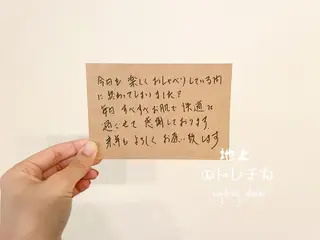 今日も 楽しくおしゃべりしている内
に終わってしまいました？
毎日 すべすべお肌で快適に
過ごせて 感謝しております
来年もよろしくお願い致します
地上
のトレチカ